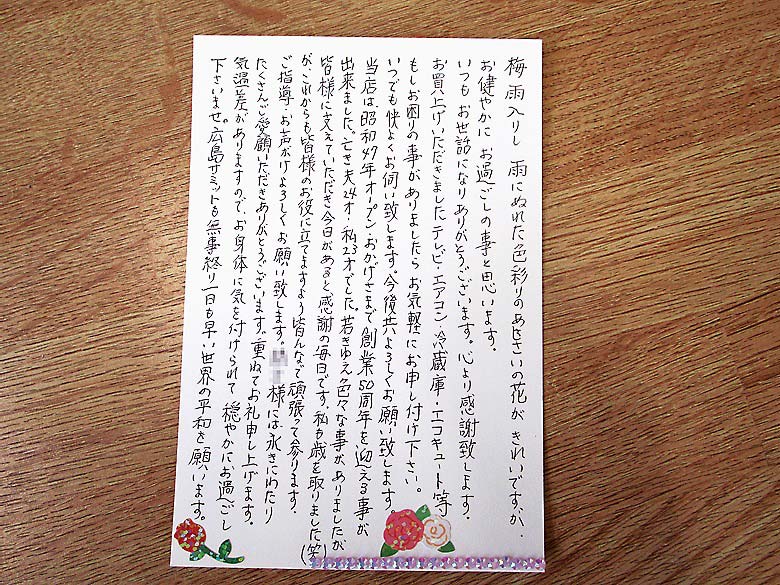 梅雨入りし 雨にぬれた色彩りのあじさいの花が きれいですが、
お健やかに お過ごしの事と思います。
いつも お世話になりありがとうございます。心より感謝致します。
お買上げいただきましたテレビ・エアコン・冷蔵庫・エコキュート等
もしお困りの事がありましたら お気軽にお申し付け下さい。
いつでも快よくお伺い致します。今後共よろしくお願い致します。
当店は、昭和47年オープン・おかげさまで創業50周年を迎える事が
出来ました。亡き夫24才・私23才でした。若きゆえ色々な事がありましたが
皆様に支えていただき今日があると、感謝の毎日です。私も歳を取りました(笑)
が、これからも皆様のお役に立てますよう皆んなで頑張って参ります。
ご指導・お声がけよろしくお願い致します。 様には永きにわたり
たくさんご愛顧いただきありがとうございます。重ねてお礼申し上げます。
気温差がありますので、お身体に気を付けられて 穏やかにお過ごし
下さいませ。広島サミットも無事終り一日も早い世界の平和を願います。